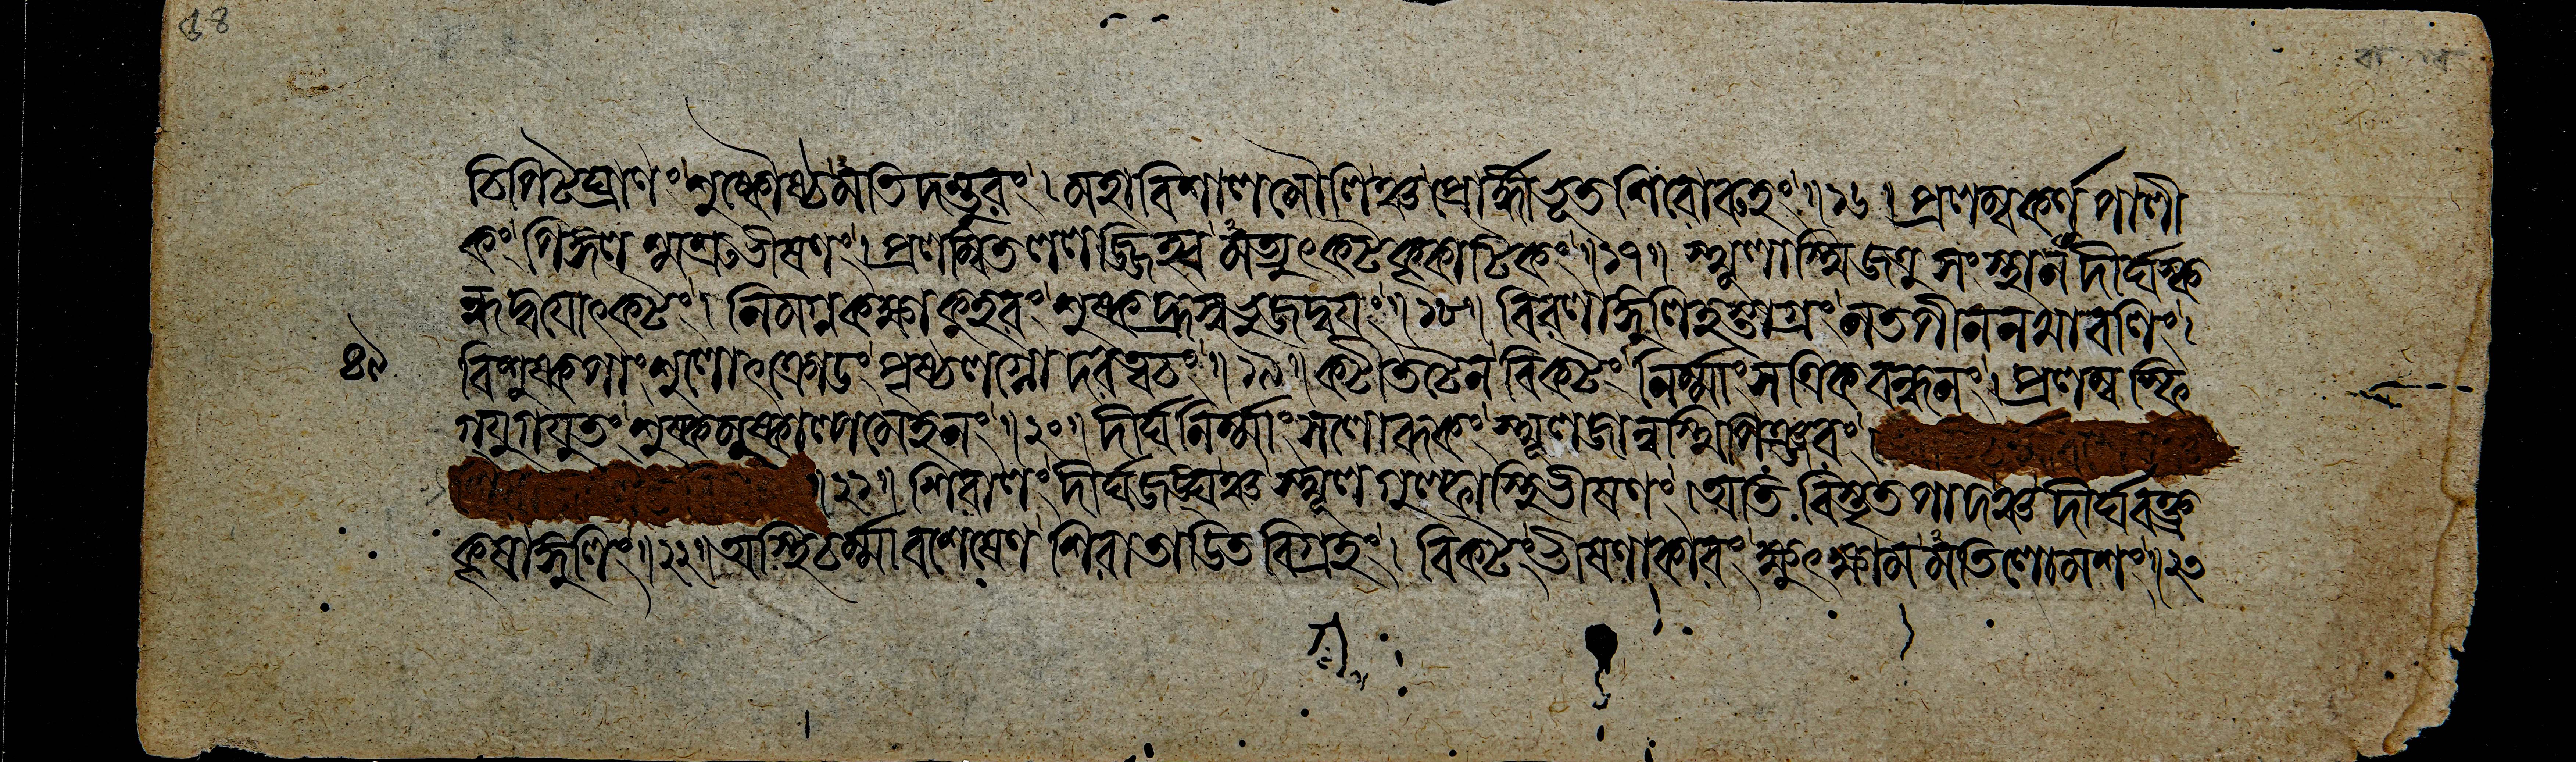 চিপিটঘ্রাণং শুষ্কৌষ্ঠমতিদন্তুরং। মহাবিশালমৌলিঞ্চ প্রোর্দ্ধ্বীভূতশিরোরুহং॥১৬॥ প্রলম্বকর্ণপালী
কং পিঙ্গলশ্মশ্রুভীষণং। প্রলম্বিতললজ্জিহ্বমত্যুৎকটকৃকাটিকং॥১৭॥ স্থূলাস্থিজত্রুসংস্থানং দীর্ঘস্ক
ন্ধদ্বয়োৎকটং। নিমগ্নকক্ষাকুহরং শুষ্কহ্রস্বভুজদ্বয়ং॥১৮॥ বিরলাঙ্গুলিহস্তাগ্রং নতপীননখাবলিং।
৪৯ বিশুষ্কপাংশুলোৎক্রোডং পৃষ্ঠলগ্নোদরত্বচং॥১৯॥ কটীতটেন বিকটং নির্ম্মাংসত্রিকবন্ধনং। প্রলম্বস্ফি
গ্যুগযুতং শুষ্কমুষ্কাল্পমেহনং॥২০॥ দীর্ঘনির্ম্মাংসলোরুকং স্থূলজান্বস্থিপঞ্জরং।
॥২১॥ শিরালং দীর্ঘজঙ্ঘঞ্চ স্থূলগুল্ফাস্থিভীষণং। অতিবিস্তৃতপাদঞ্চ দীর্ঘবক্র
কৃষাঙ্গুলিং॥২২॥ অস্থিচর্ম্মাবশেষেণ শিরাতাডিতবিগ্রহং। বিকটং ভীষণাকারং ক্ষুৎক্ষামমতিলোমশং॥২৩